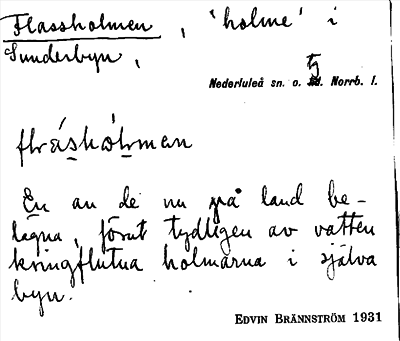 Flassholmen, 'holme' i
Sunderbyn,
Nederluleå sn. o. tg. Norrb. l.
flråshólmen
En av de nu på land be-
lägna, förut tydligen av vatten
kringflutna holmarna i själva
byn.
EDVIN BRÄNNSTRÖM 1931